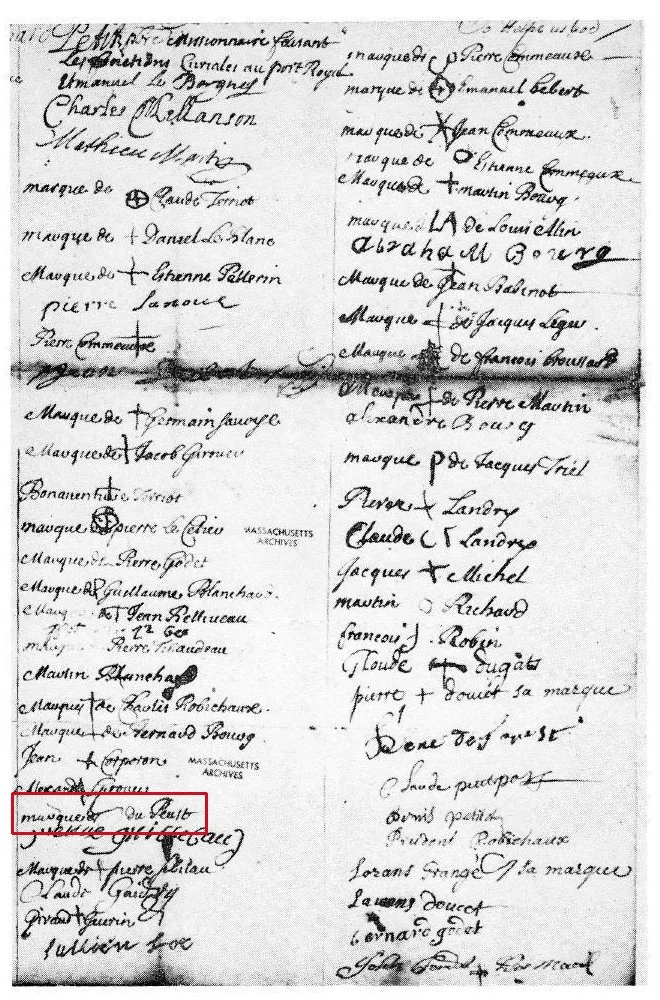 Petit Ptre Missionnaire faisant
Les fonctions Curiales au port Royal
Emanuel Le Borgne
Charles Mellanson
Mathieu Martin
marque de Claude Terriot
marque de + Daniel Le Blanc
Marque de + Estienne Pellerin
pierre Lanoue
Pierre Commeaux
Jean
Marque de + Germain Savoye
Marque de Jacob Girouer
Bonaventure Terriot
marque de pierre Le
MASSACHUSETTS
ARCHIVES
Marque de Pierre Godet
Marque de Guillaume Blanchard
Marq de Jean Relliveau
Pierre Thibaudeau
Martin Blanchard
Marque de Charles Robichaux.
Marque de Bernard Bourg
Jean + Corporon
MASSACHUSETTS
ARCHIVES
Alexandre Girouer
marque de du Peust
Marque de + pierre
Claude
Giraud + Guerin
Jullien
So Helpe us God
marque de Pierre Commeaux
marque de Emanuel Hebert
marque de Jean Commeaux.
marque de Estienne Commeaux
Marque de + martin Bourg
marque LA de Louis Allin
abraham Bourg
Marque de Jean Babinot
Marque de Jacques Leger.
Marque de francois Broussard
Marque de Pierre Martin
alexandre Bourg
marque P de Jacques Triel
Pierre Landry
Claude Landry
Jacques + Michel
martin O Richard
francois Robin
Gloude + Dugats
pierre + doucet sa marque
Rene de forest
Claude petitpas
Denis petitot
Prudent Robichaux
Lorans Grangé sa marque
Lawens doucet
bernard godet
John + His Mark